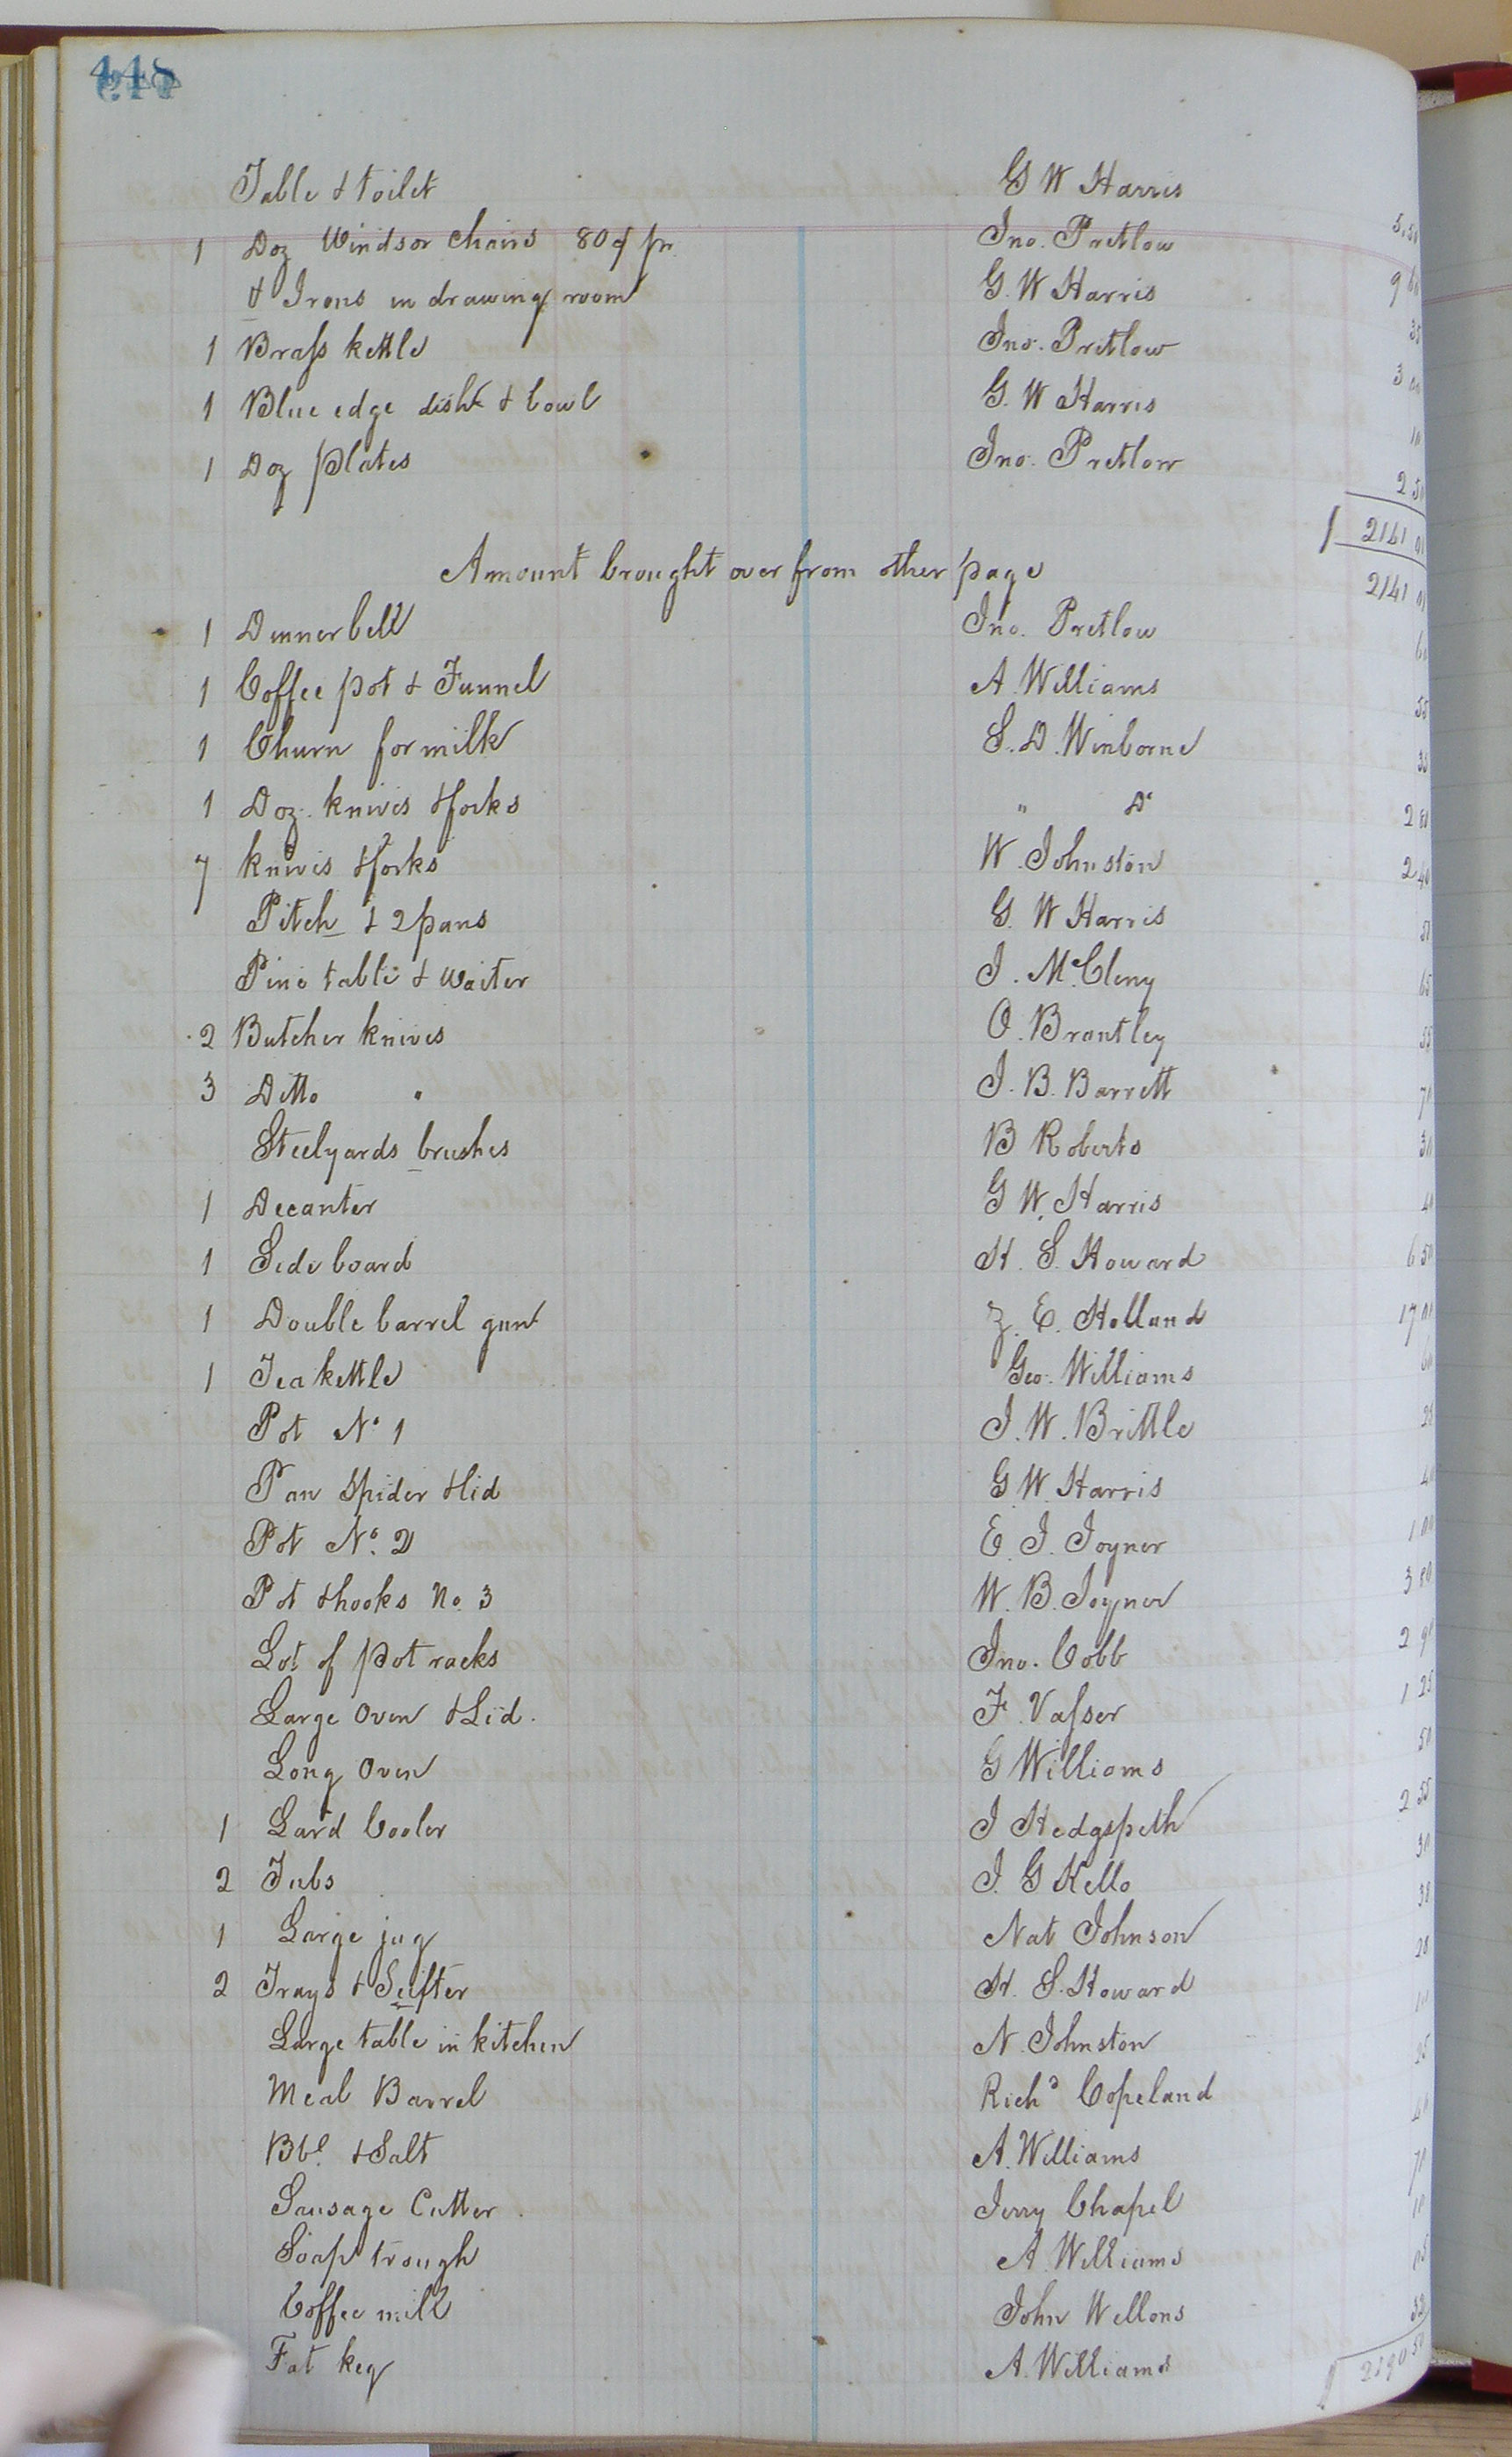 448
Table & toilet G W Harris 5.50
1 Doz Windsor chairs 80 ¢ pr. Jno. Pretlow 9 60
& Irons in drawing room G. W Harris 35
1 Brass kettle Jno. Pretlow 3 00
1 Blue edge dish & bowl G. W Harris 10
1 Doz plates Jno. Pretlow 2 50
2141 01
Amount brought over from other page 2141 01
1 Dinner bell Jno. Pretlow
1 Coffee pot & Funnel A. Williams 55
1 Churn for milk S. D. Winborne
1 Doz. knives & forks " Do 2 80
7 knives & forks W. Johnston 2 40
Pitch & 2 pans G. W Harris
Pine table & Waiter J. McCleny 65
2 Butcher knives O. Brantley 55
3 Ditto " J. B. Barrett
Steelyards brushes B Roberts
1 Decanter G W. Harris
1 Side board H. S. Howard 6 50
1 Double barrel gun Z. E. Holland 17 00
1 Tea kettle Geo. Williams
Pot No 1 J. W. Brittle
Pan Spider & lid G. W. Harris
Pot No. 2 E. J. Joyner 1 00
Pot & hooks No. 3 W. B. Joyner 3 80
Lot of Pot racks Jno. Cobb
Large Oven & Lid. F. Vasser 1 25
Long Oven G Williams 50
1 Lard Cooler J Hedgspeth 2 55
2 Tubs J. G Kello
1 Large jug Nat Johnson
2 Trays & Seifter H. S. Howard
Large table in kitchen N. Johnston
Meal Barrel Richd Copeland
Bbl. & Salt A. Williams
Sausage Cutter. Jerry Chapel
Soap trough A. Williams
Coffee mill John Wellons
Fat keg A. Williams